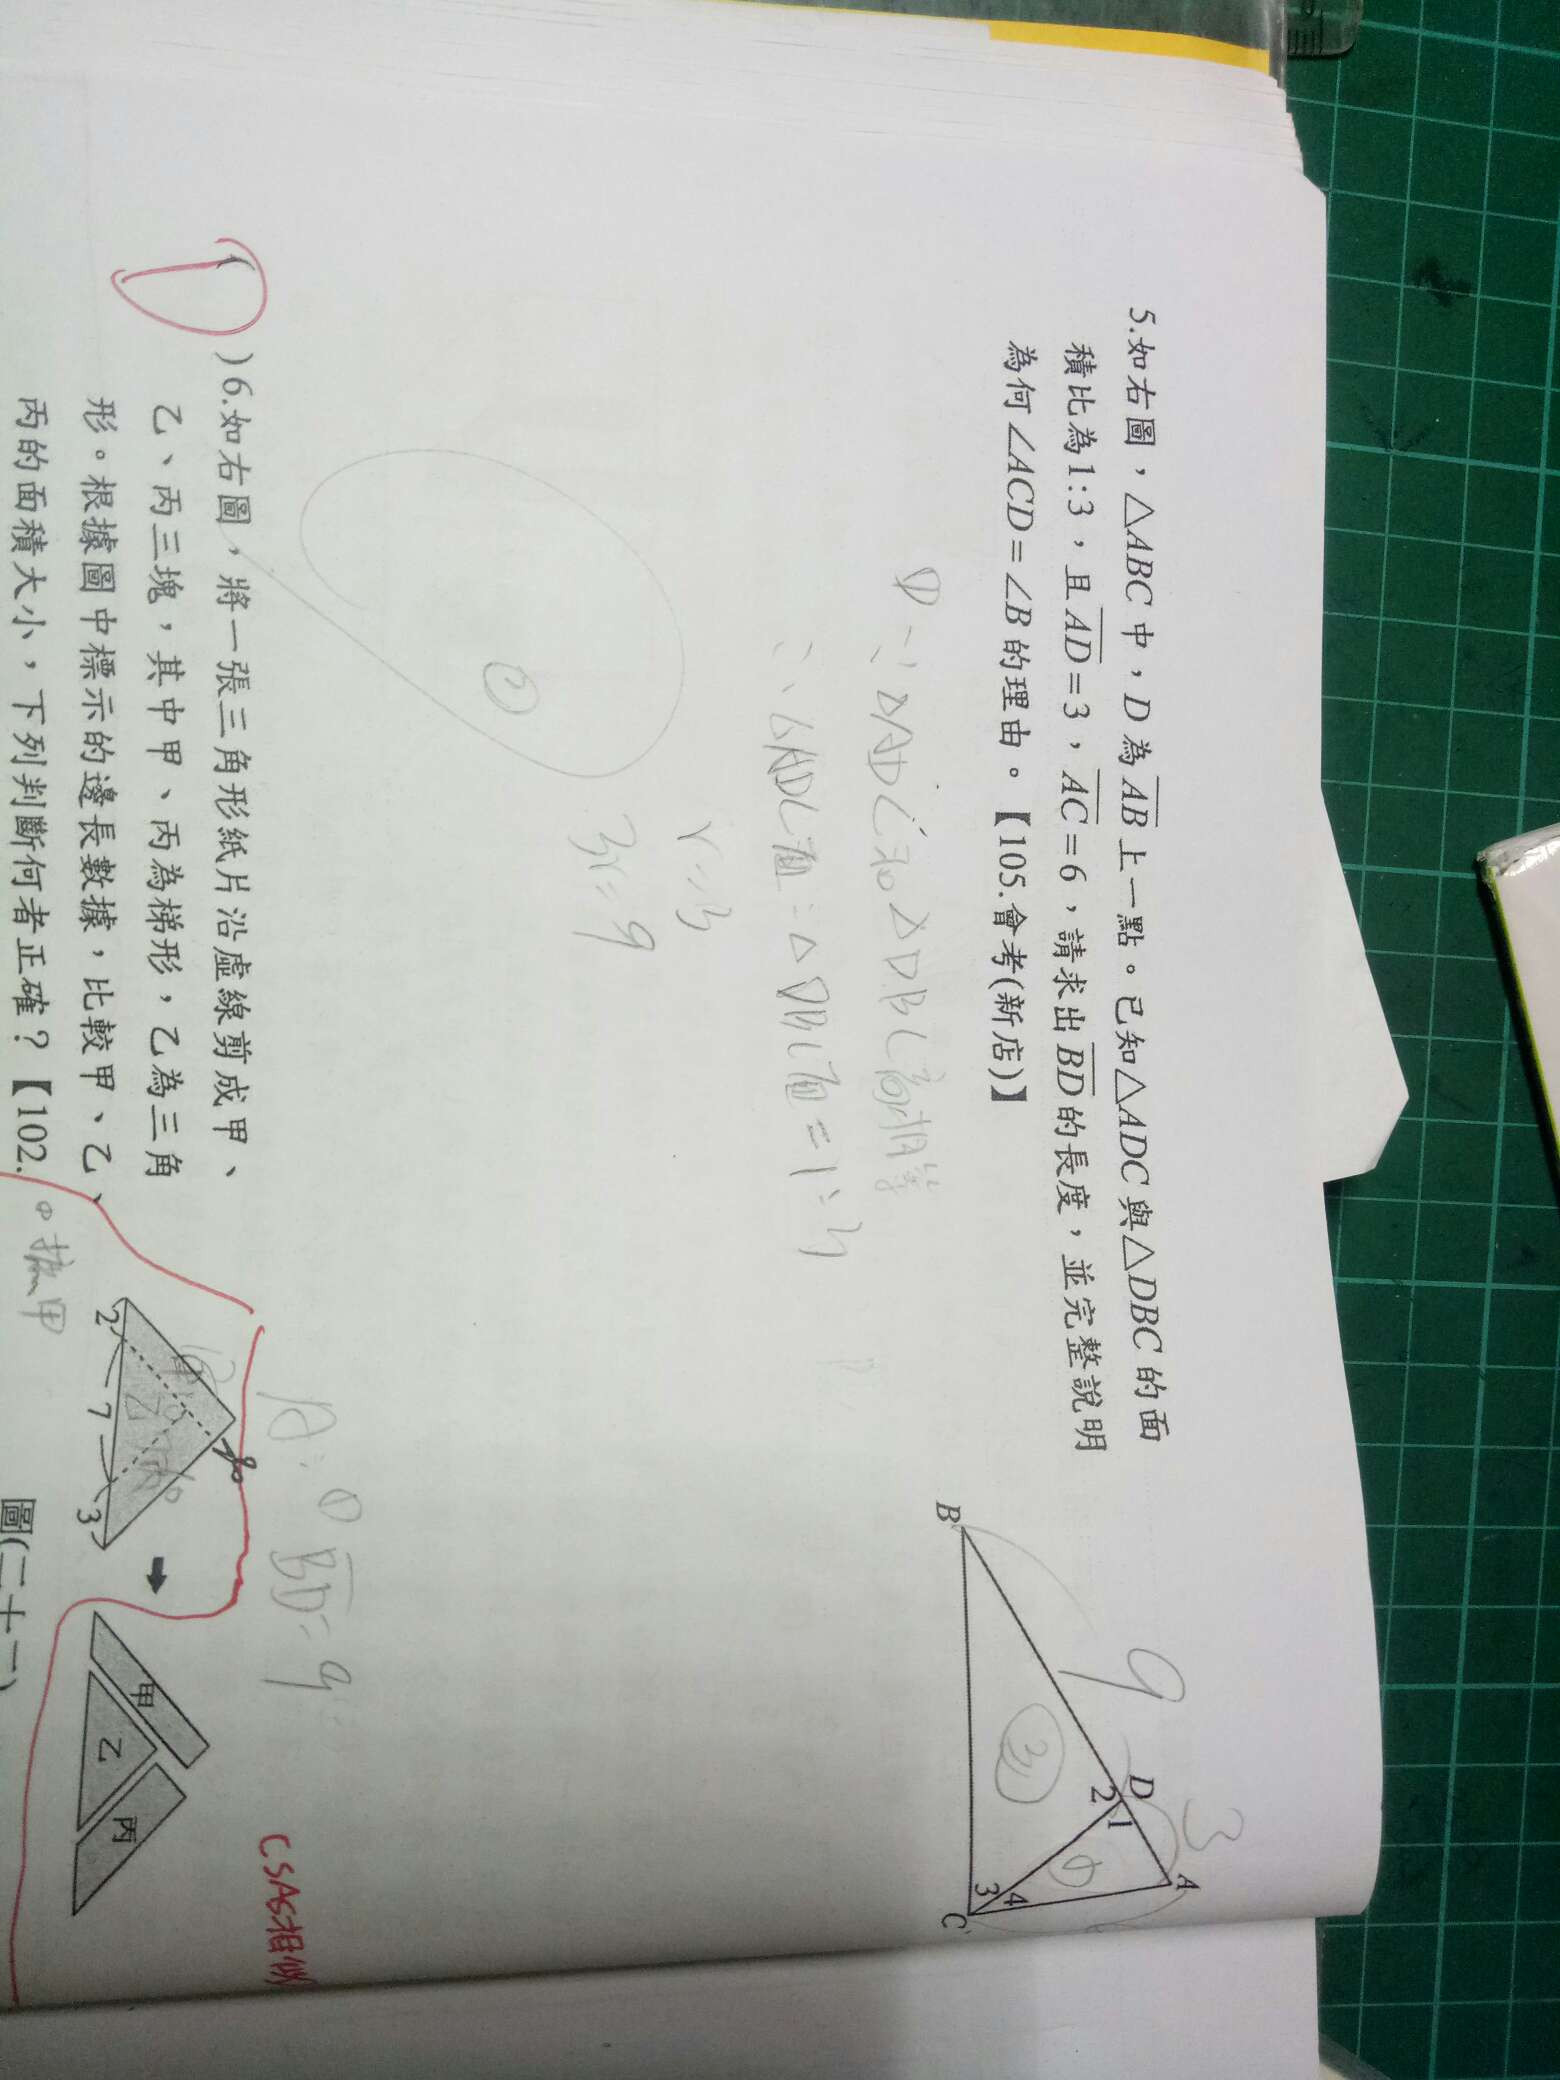 5.如右圖，△ABC中，D為AB上一點。已知△ADC與△DBC的面
積比為1:3，且AD=3，AC=6，請求出BD的長度，並完整說明
為何∠ACD=∠B的理由。【105.會考(新店)】
B
D
A
C
2
1
3
4
9
3
③
①
① ∵ △ADC和△DBC高相等
r=3
3r=9
②
A: ① BD=9
CSAS相似
)6.如右圖，將一張三角形紙片沿虛線剪成甲、
乙、丙三塊，其中甲、丙為梯形，乙為三角
形。根據圖中標示的邊長數據，比較甲、乙、
丙的面積大小，下列判斷何者正確？【102.
2
7
3
乙
甲
乙
丙
圖(二十二)